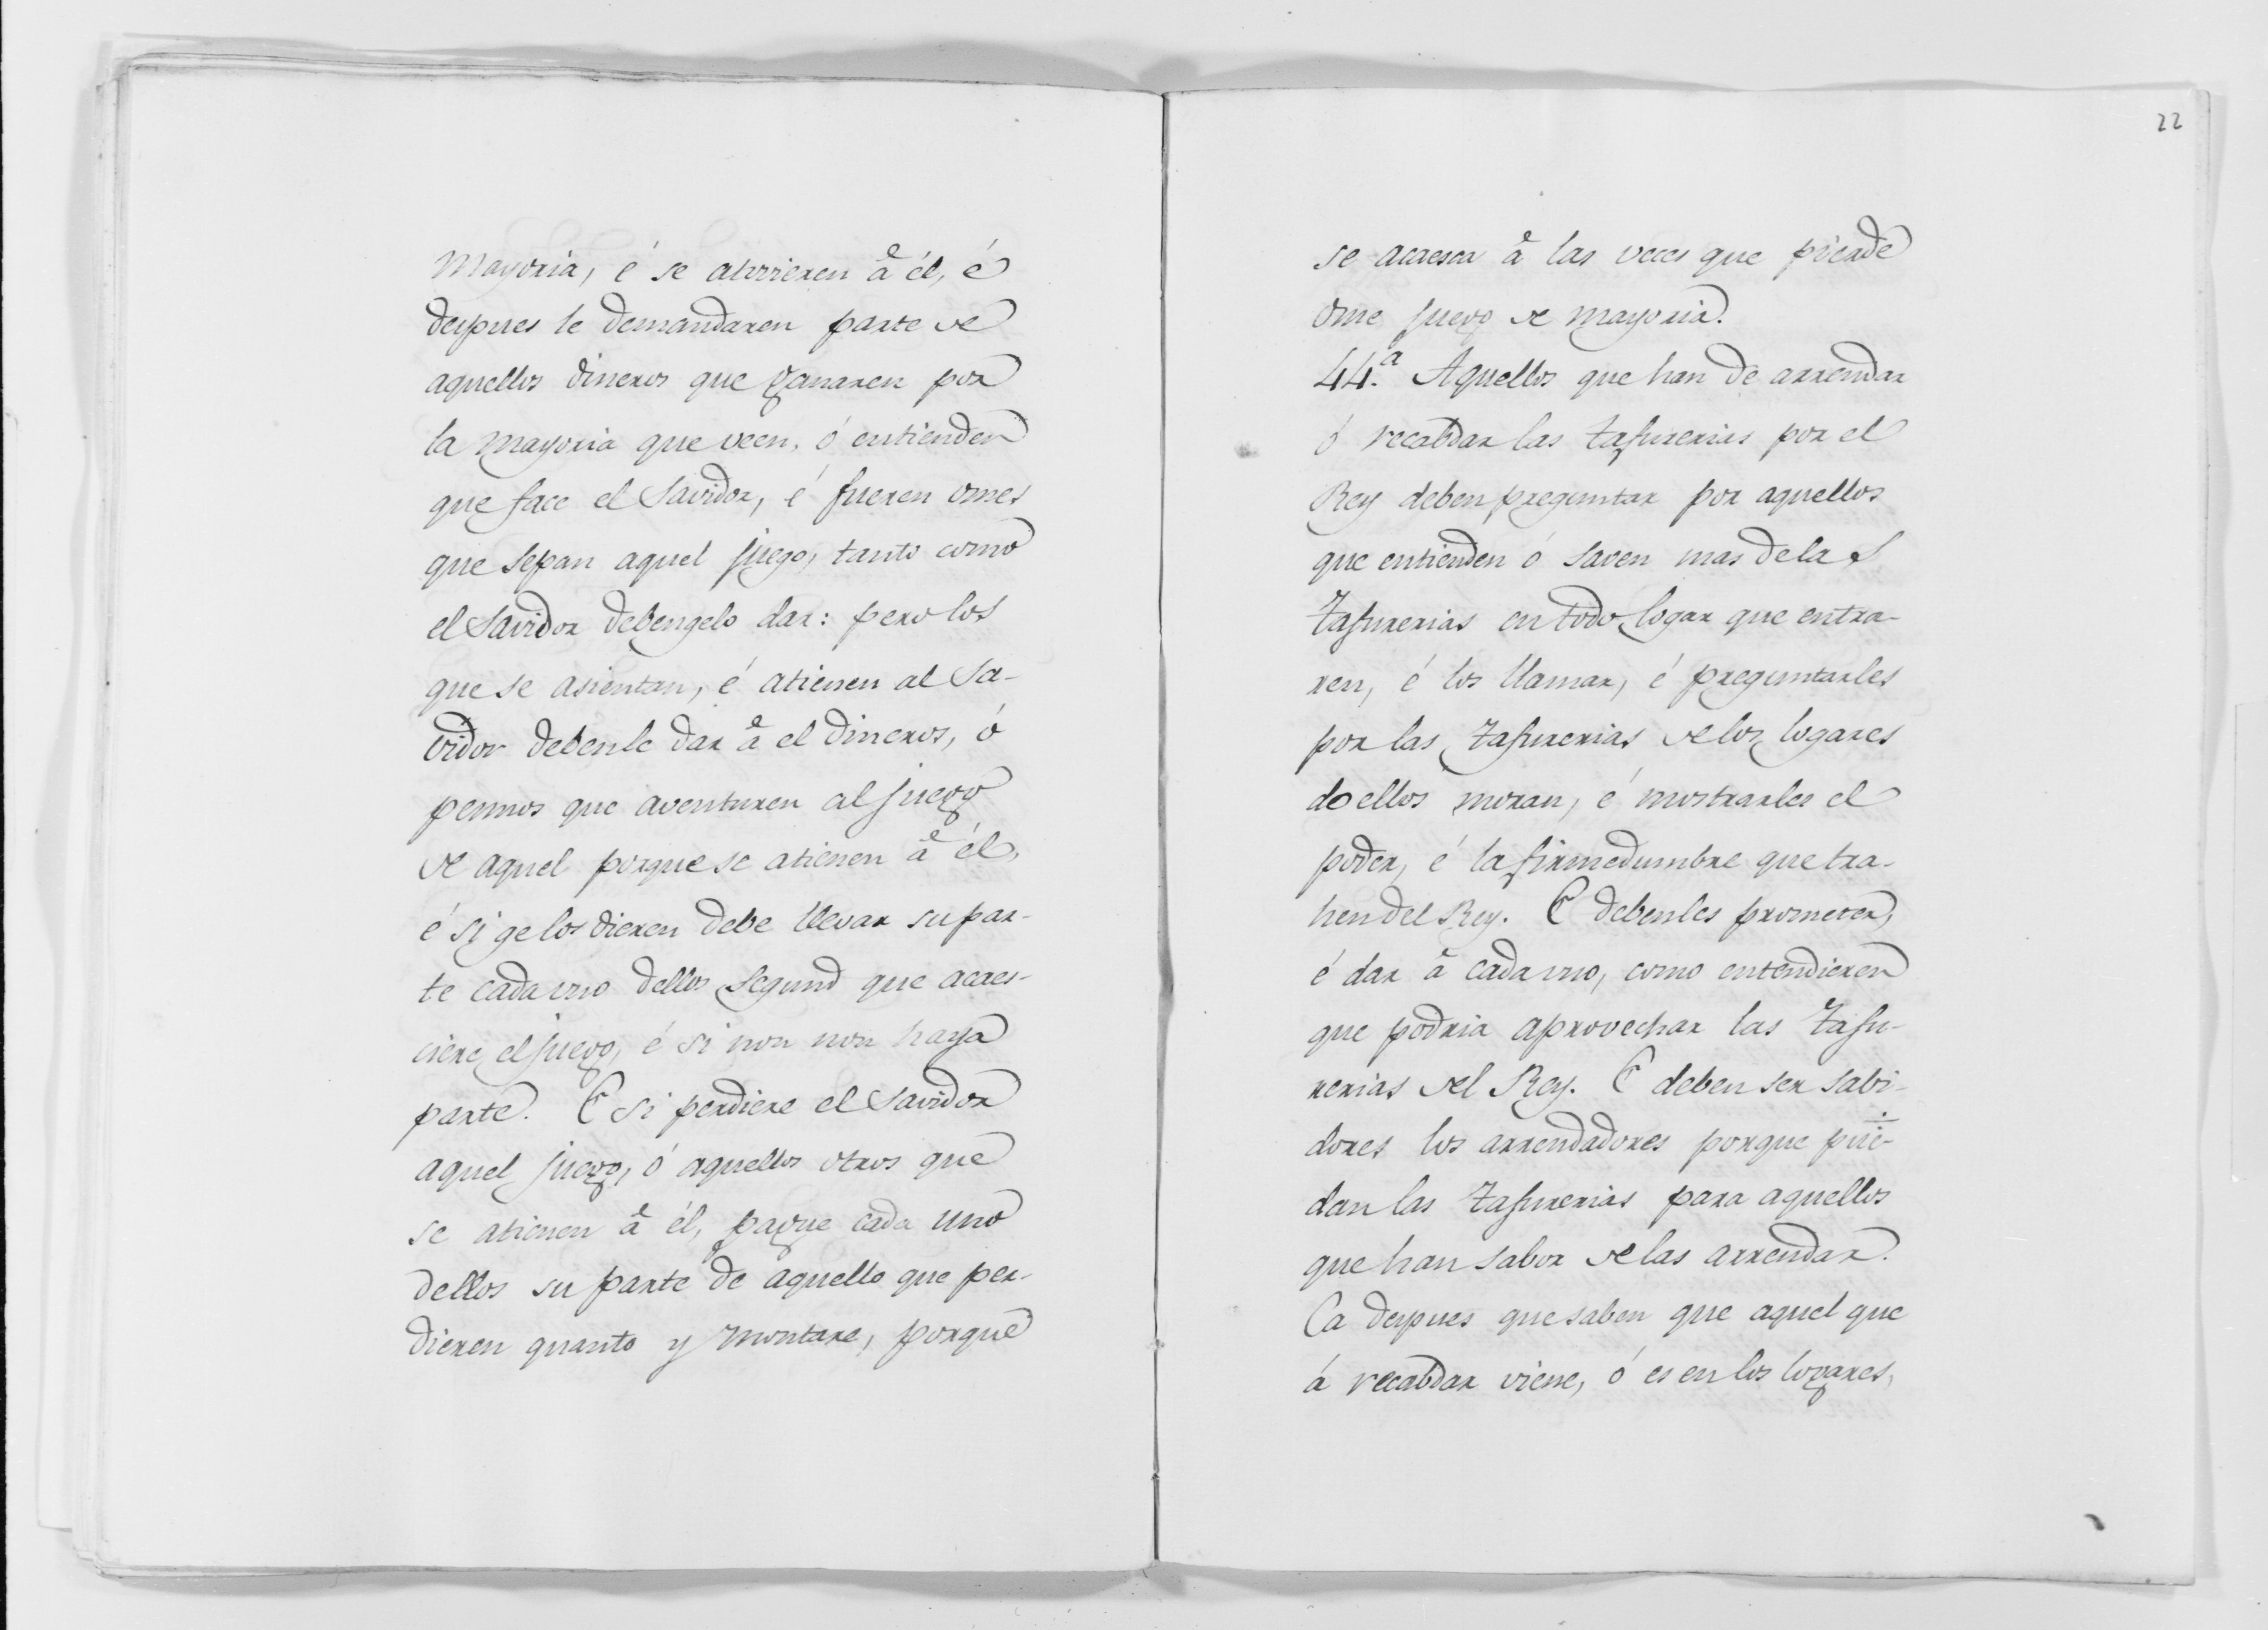 Mayoria, é se atovieren â él, é
despues le demandaren parte de
aquellos dineros que ganaren por
la mayoria que veen, ó entienden
que face el Savidor, é fueren omes
que sepan aquel juego, tanto como
el Savidor debengelo dar: pero los
que se asientan, é atienen al Sa-
vidor debenle dar â el dineros, ó
pennos que aventuren al juego
de aquel porque se atienen â él,
é si ge los dieren debe llevar su par-
te cada uno dellos segund que acaes-
ciere el juego, é si non non haya
parte. E si perdiere el Savidor
aquel juego, ó aquellos otros que
se atienen â él, pague cada uno
dellos su parte de aquello que per-
dieren quanto y montare, porque
22
se acaesca â las veces que pierde
ome juego de mayoria.
44.ª Aquellos que han de arrendar
ó recabdar las tafurerias por el
Rey deben preguntar por aquellos
que entienden ó saven mas de las
tafurerias en todo logar que entra-
ren, é los llamar, é preguntarles
por las tafurerias de los logares
do ellos moran, é mostrarles el
poder, é la firmedumbre que tra-
hen del Rey. E debenles prometer,
é dar â cada uno, como entendieren
que podria aprovechar las tafu-
rerias del Rey. E deben ser sabi-
dores los arrendadores porque pue-
dan las tafurerias para aquellos
que han sabor de las arrendar.
Ca despues que saben que aquel que
á recabdar viene, ó es en los logares,